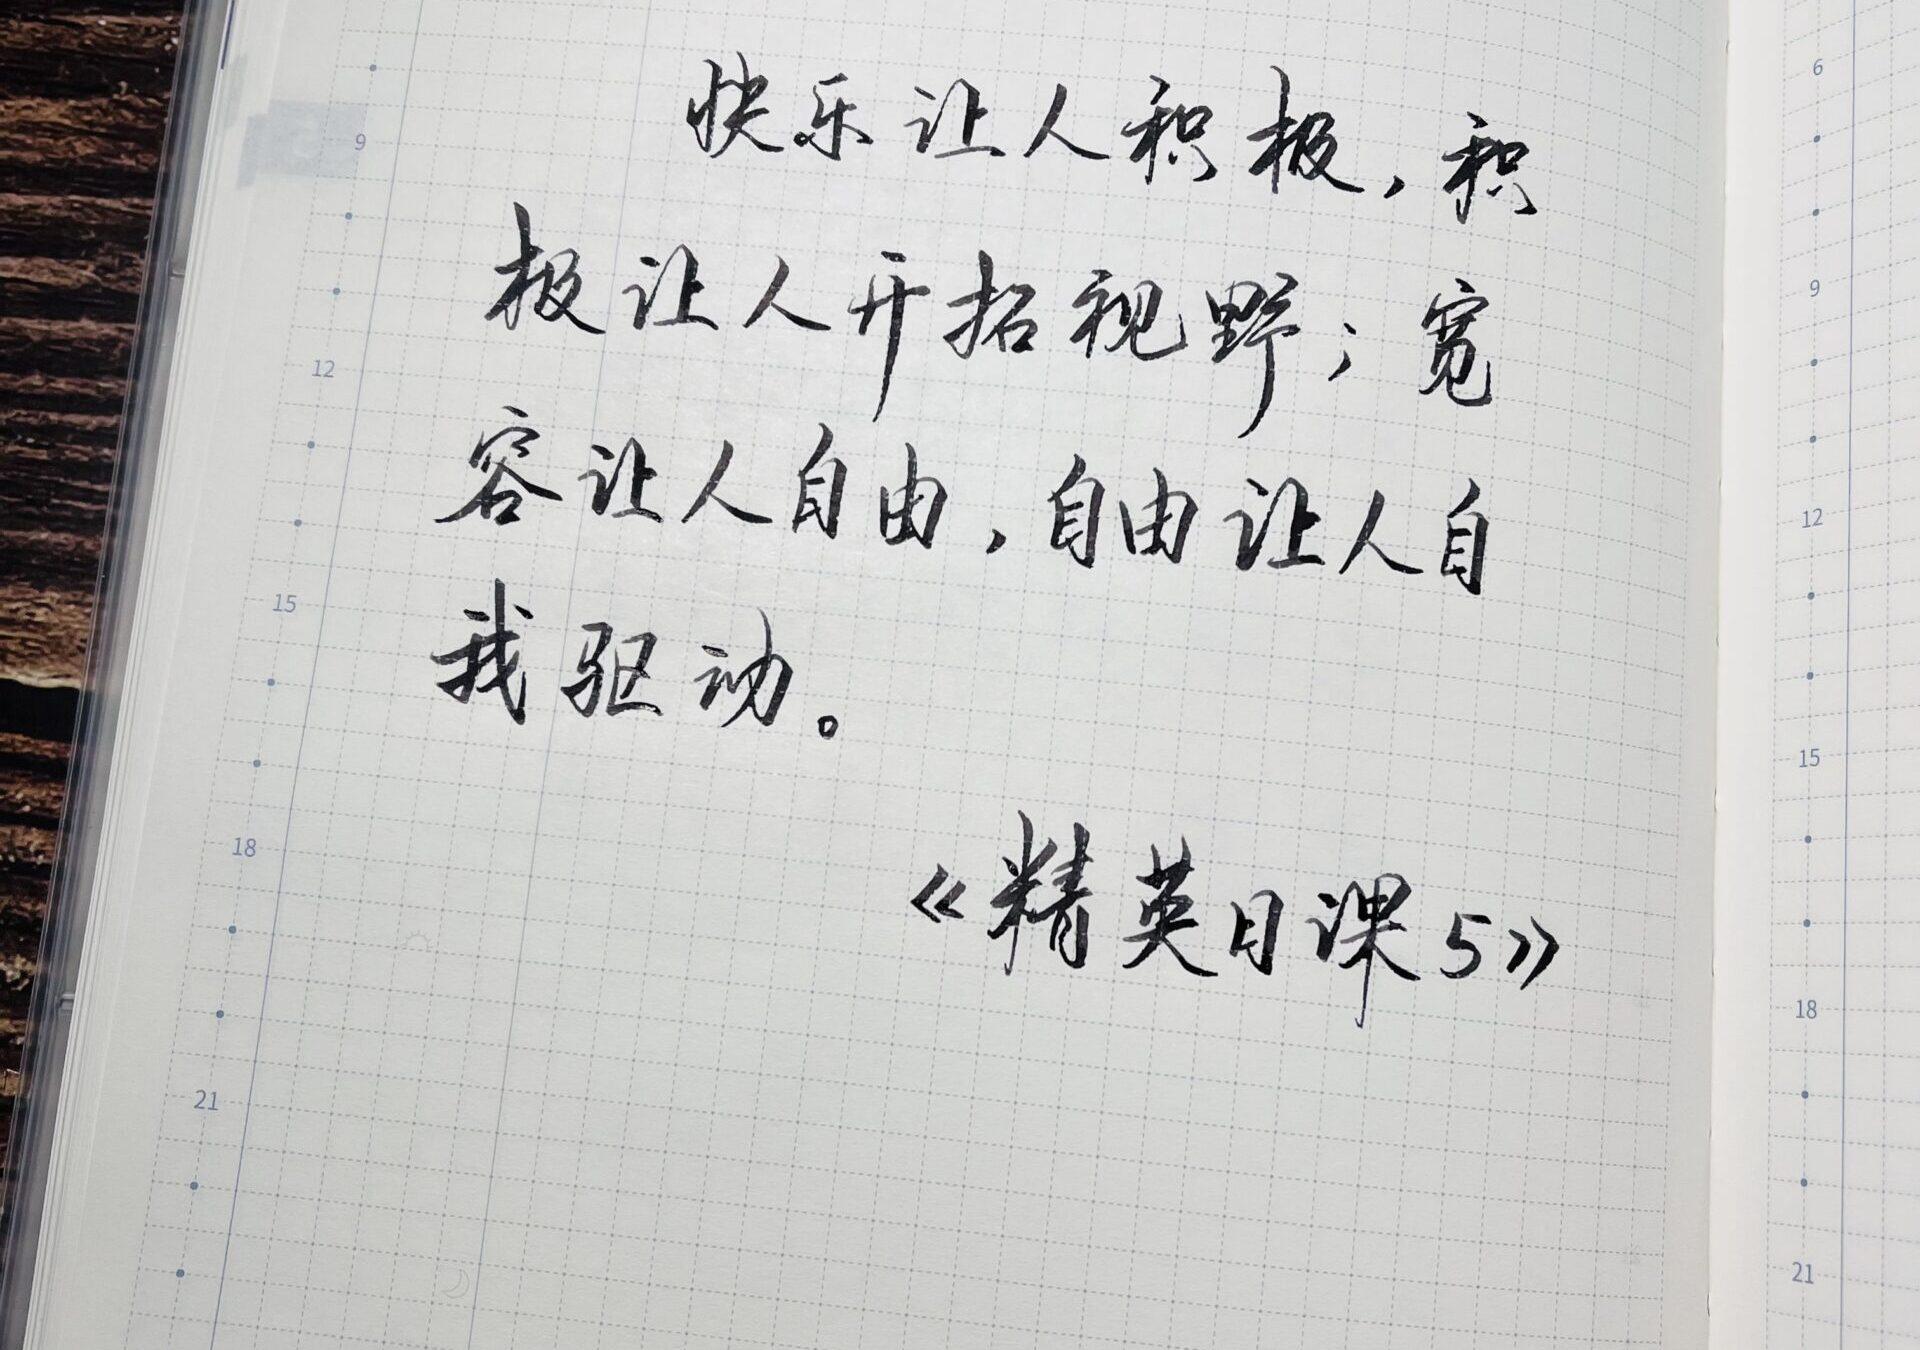 快乐让人积极，积
极让人开拓视野；宽
容让人自由，自由让人自
我驱动。
《精英日课5》
9
12
15
18
21
6
9
12
15
18
21